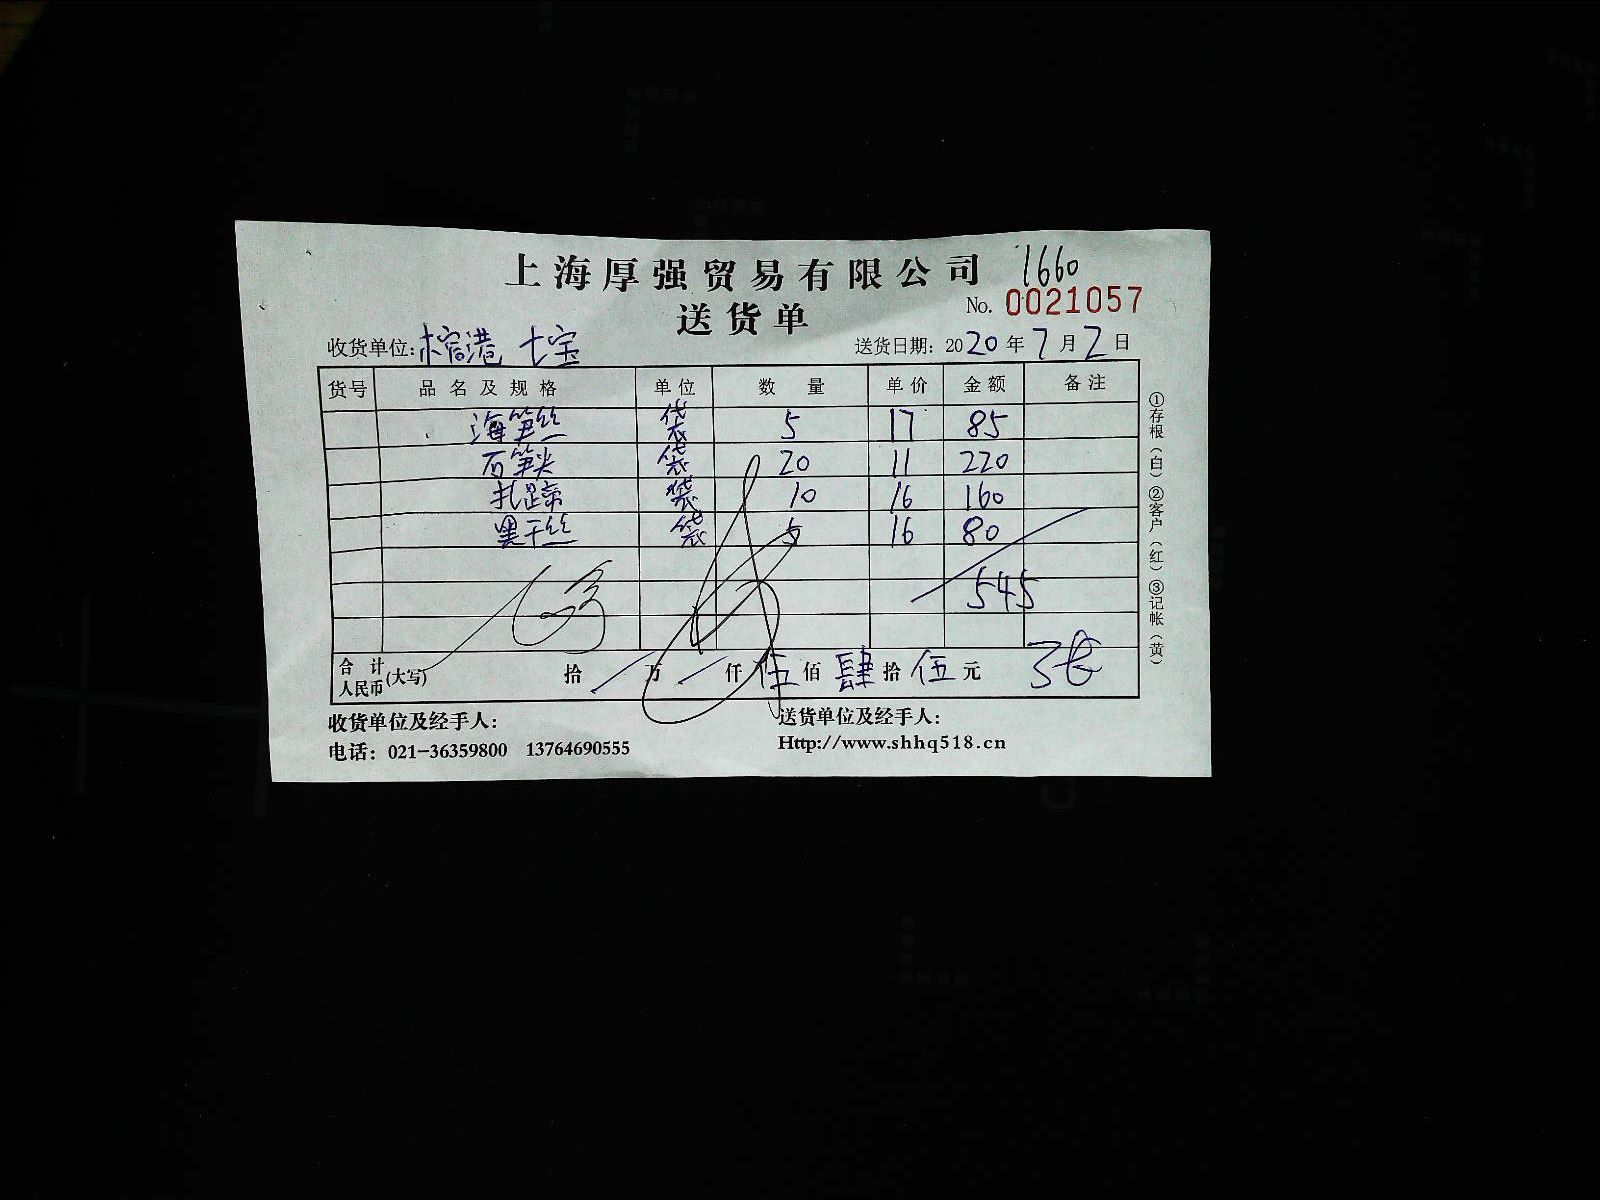 上海厚强贸易有限公司 1660
送货单 No. 0021057
收货单位: 榕港 七宝 送货日期: 2020年7月2日
货号 品名及规格 单位 数量 单价 金额 备注
海笋丝 袋 5 17 85
石笋尖 袋 20 11 220
扎蹄 袋 10 16 160
黑干丝 袋 5 16 80
545
合计人民币(大写) 拾 万 仟 伍 佰 肆 拾 伍 元
收货单位及经手人: 送货单位及经手人:
电话: 021-36359800 13764690555 Http://www.shhq518.cn
①存根(白)②客户(红)③记帐(黄)